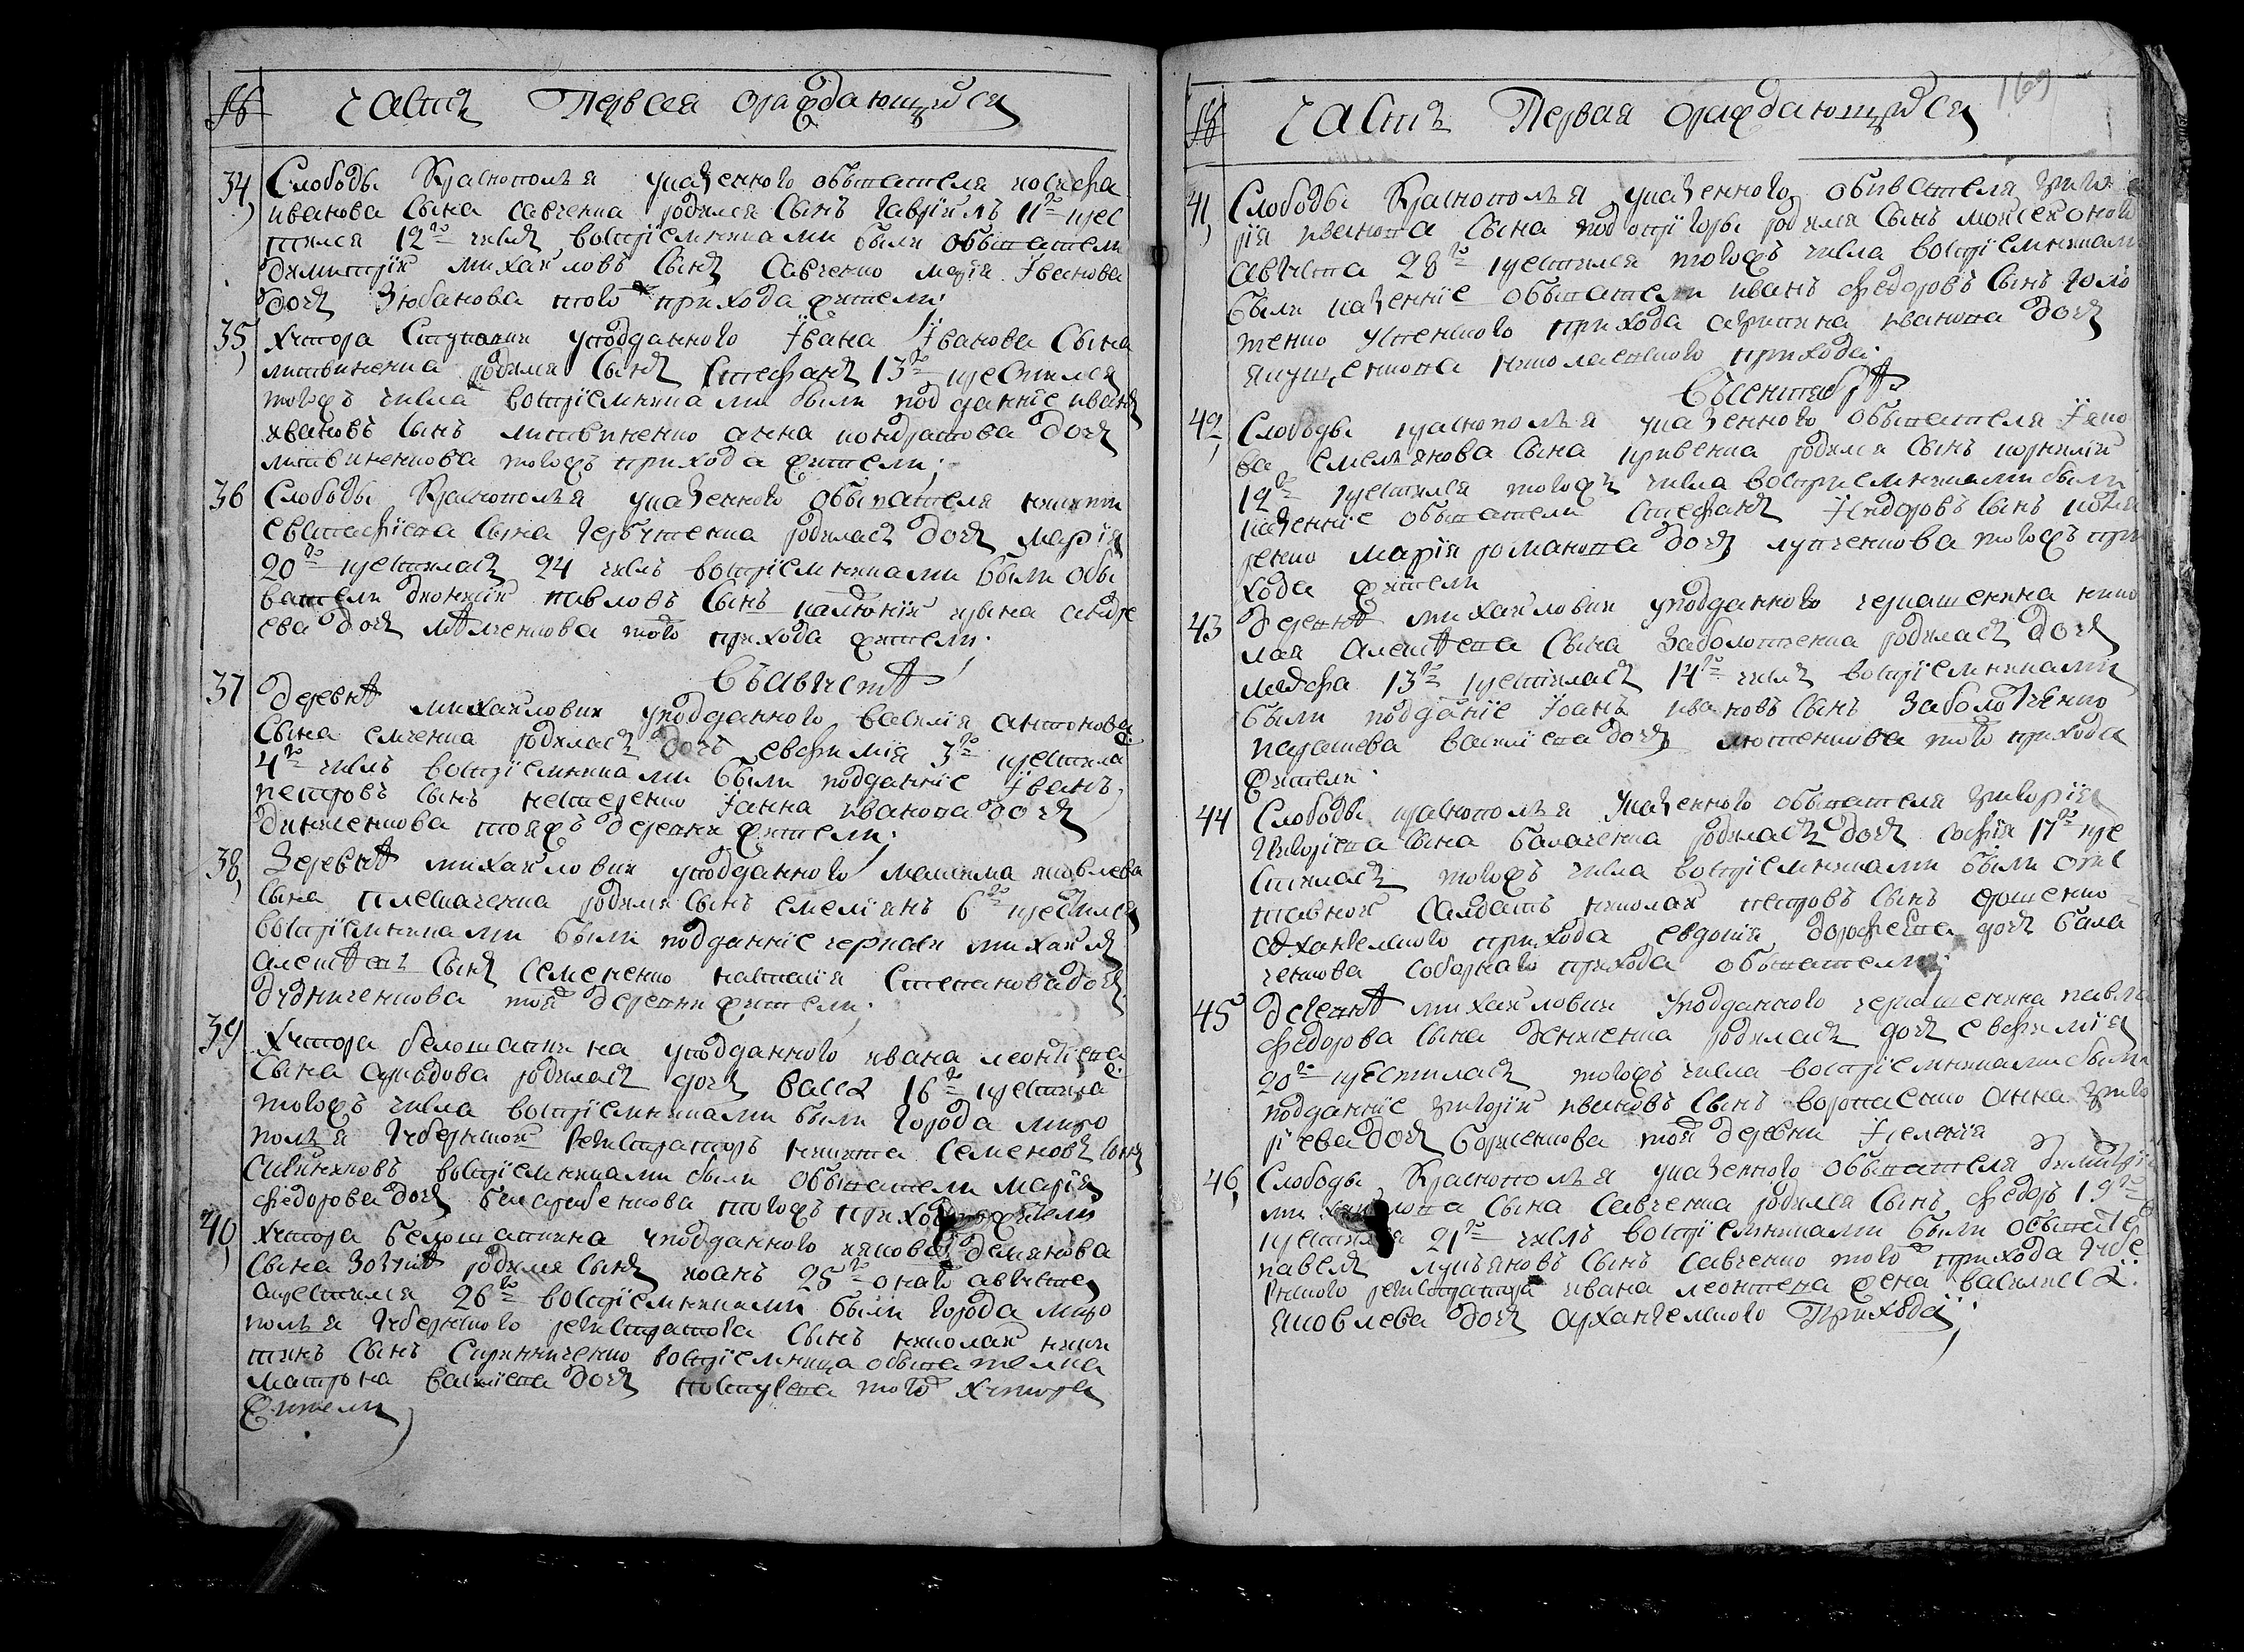 № Часть Первая ораждающихся
34, Слободы Краснополья указенного обывателя иосифа
иванова сына савченка родился сынъ гавріилъ 11го крес
тился 12го числа воспріемниками были обыватели
димитрій михаиловъ сынъ Савченко марія Іванова
дочь Зюбанова того прихода жители;
35, Хутора Ступкина уподданного Івана Іванова Сына
литвиненка родился сынъ Стефанъ 13го крестился
тогожъ числа воспріемниками были подданніе иванъ
ивановъ сынъ литвиненко анна кондратова дочь
литвиненкова тогожъ прихода жители;
36 Слободы Краснополья указенного обывателя никити
евстафіева сына горбутенка родилась дочь марія
20го крестилась 24 числъ воспріемниками были обы
ватели дионисій павловъ сынъ ирына андре
ева дочь того прихода жители;
Въ августѣ
37 деревнѣ михаиловки уподданного василія антонова
сына емченка родилась дочь евфимія 3го крестила
4го числъ воспріемниками были подданніе Іванъ
петровъ сынъ нестеренко Іанна иванова дочь
денисенкова тояжъ деревни жители;
38, деревнѣ михаиловки уподданного максима яковлева
сына плескаченка родился сынъ емеліянъ 6го крестился
воспріемниками были подданніе черкаси михаилъ
алексѣевъ сынъ Семененко наталія Степанова дочь
дудниченкова тоя деревни жители;
39 Хутора белошапкина уподданного ивана леонтіева
сына родилась дочь васса 16го крестила
тогожъ числа воспріемниками были города миро
полья губернской регистраторъ никита Семеновъ сынъ
воспріемниками были обыватели марія
федорова дочь тогожъ прихода жители
40, Хутора белошапкина уподданного иякова демянова
сына родился сынъ иоанъ 25го оного августа
акрестился 26го воспріемниками были города миро
полья губернского регистратора сынъ николай ники
тинъ сынъ воспріемница обывателка
матрона василіева дочь того хутора
жители
169
№ Часть Первая ораждающихся
41, Слободы Краснополья указенного обивателя григо
рія иванова сына подопригоры родился сынъ моисей оного
августа 28го крестился тогожъ числа воспріемниками
были казенніе обыватели иванъ федоровъ сынъ голо
тенко успенского прихода агрипина иванова дочь
ящущенкова николаевского прихода.
Въ сентябрѣ
42, Слободы краснополья указенного обывателя Іако
ва емелянова сына кривенка родился сынъ корнилій
12го крестился тогожъ числа воспріемниками были
казенніе обыватели стефанъ Ісидоровъ сынъ
ренко марія романова дочь лупченкова тогожъ при
хода жители
43 деревнѣ михаиловки уподданного черкашенина нико
лая алексѣева сына Заболотенка родилась дочь
13го крестилась 14го числъ воспріемниками
были подданіе Іоанъ ивановъ сынъ Заболотченко
парашева василіева дочь лютенкова того прихода
жители;
44 Слободы краснополья указенного обывателя григорія
григоріева сына балаченка родилась дочь софія 17го кре
стилась тогожъ числа воспріемниками были отъс
тавной салдатъ николай петровъ сынъ ерошенко
архангелского прихода евдокія дорофеева дочь бала
ченкова соборнаго прихода обыватели;
45 деревнѣ михаиловки уподданного черкашенина павла
федорова сына денисенка родилась дочь евфимія
20го крестилась тогожъ числа воспріемниками были
подданніе григорій ивановъ сынъ анна григо
ріева дочь борисенкова тоя деревни жители
46, Слободы Краснополья указенного обывателя димитрія
михаилова сына Савченка родился сынъ федоръ 19го
крестился 21го числъ воспріемниками были обывате
павелъ лукъяновъ сынъ савченко того прихода губе
рнского регистратора ивана леонтева жена василисса
яковлева дочь архангелского прихода;